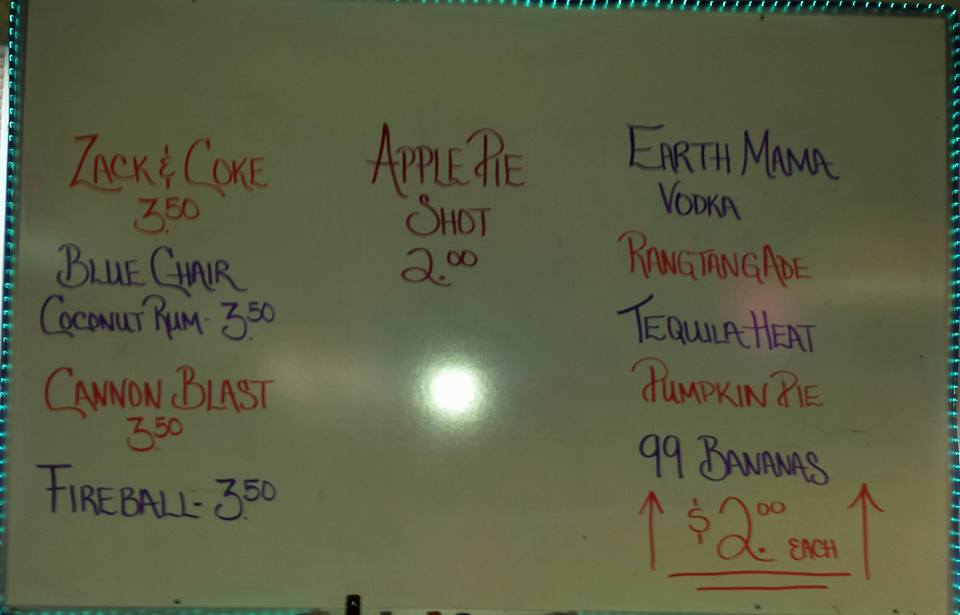 ZACK & COKE
3.50
BLUE CHAIR
COCONUT RUM - 3.50
CANNON BLAST
3.50
FIREBALL - 3.50
APPLE PIE
SHOT
2.00
EARTH MAMA
VODKA
RANGTANGADE
TEQUILA HEAT
PUMPKIN PIE
99 BANANAS
$2.00 EACH